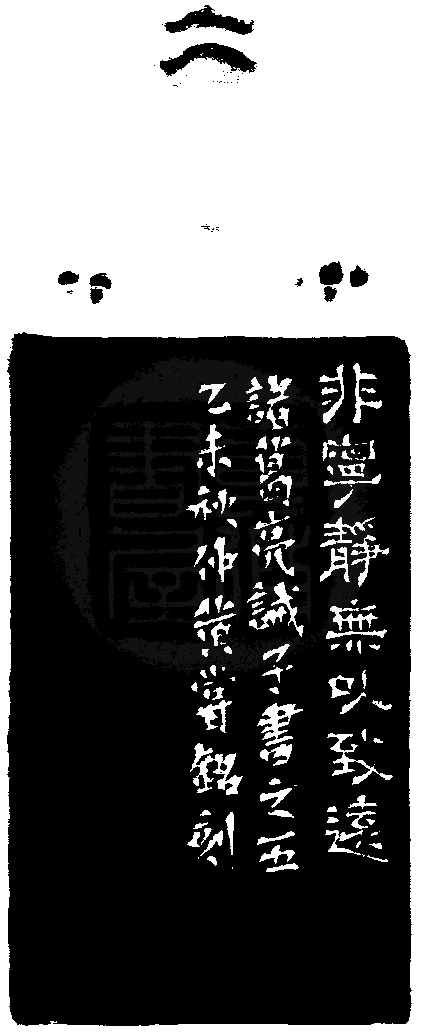 非寧靜無以致遠
諸葛亮誡子書之五
乙未秋仲黄嘗銘刻